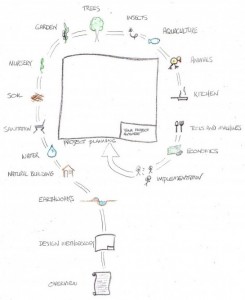 TREES
INSECTS
GARDEN
AQUACULTURE
NURSERY
ANIMALS
SOIL
KITCHEN
SANITATION
TOOLS AND MACHINES
YOUR PROJECT
PROJECT PLANNING
WATER
ECONOMICS
NATURAL BUILDING
? ?
IMPLEMENTATION
EARTHWORKS
DESIGN METHODOLOGY
OVERVIEW